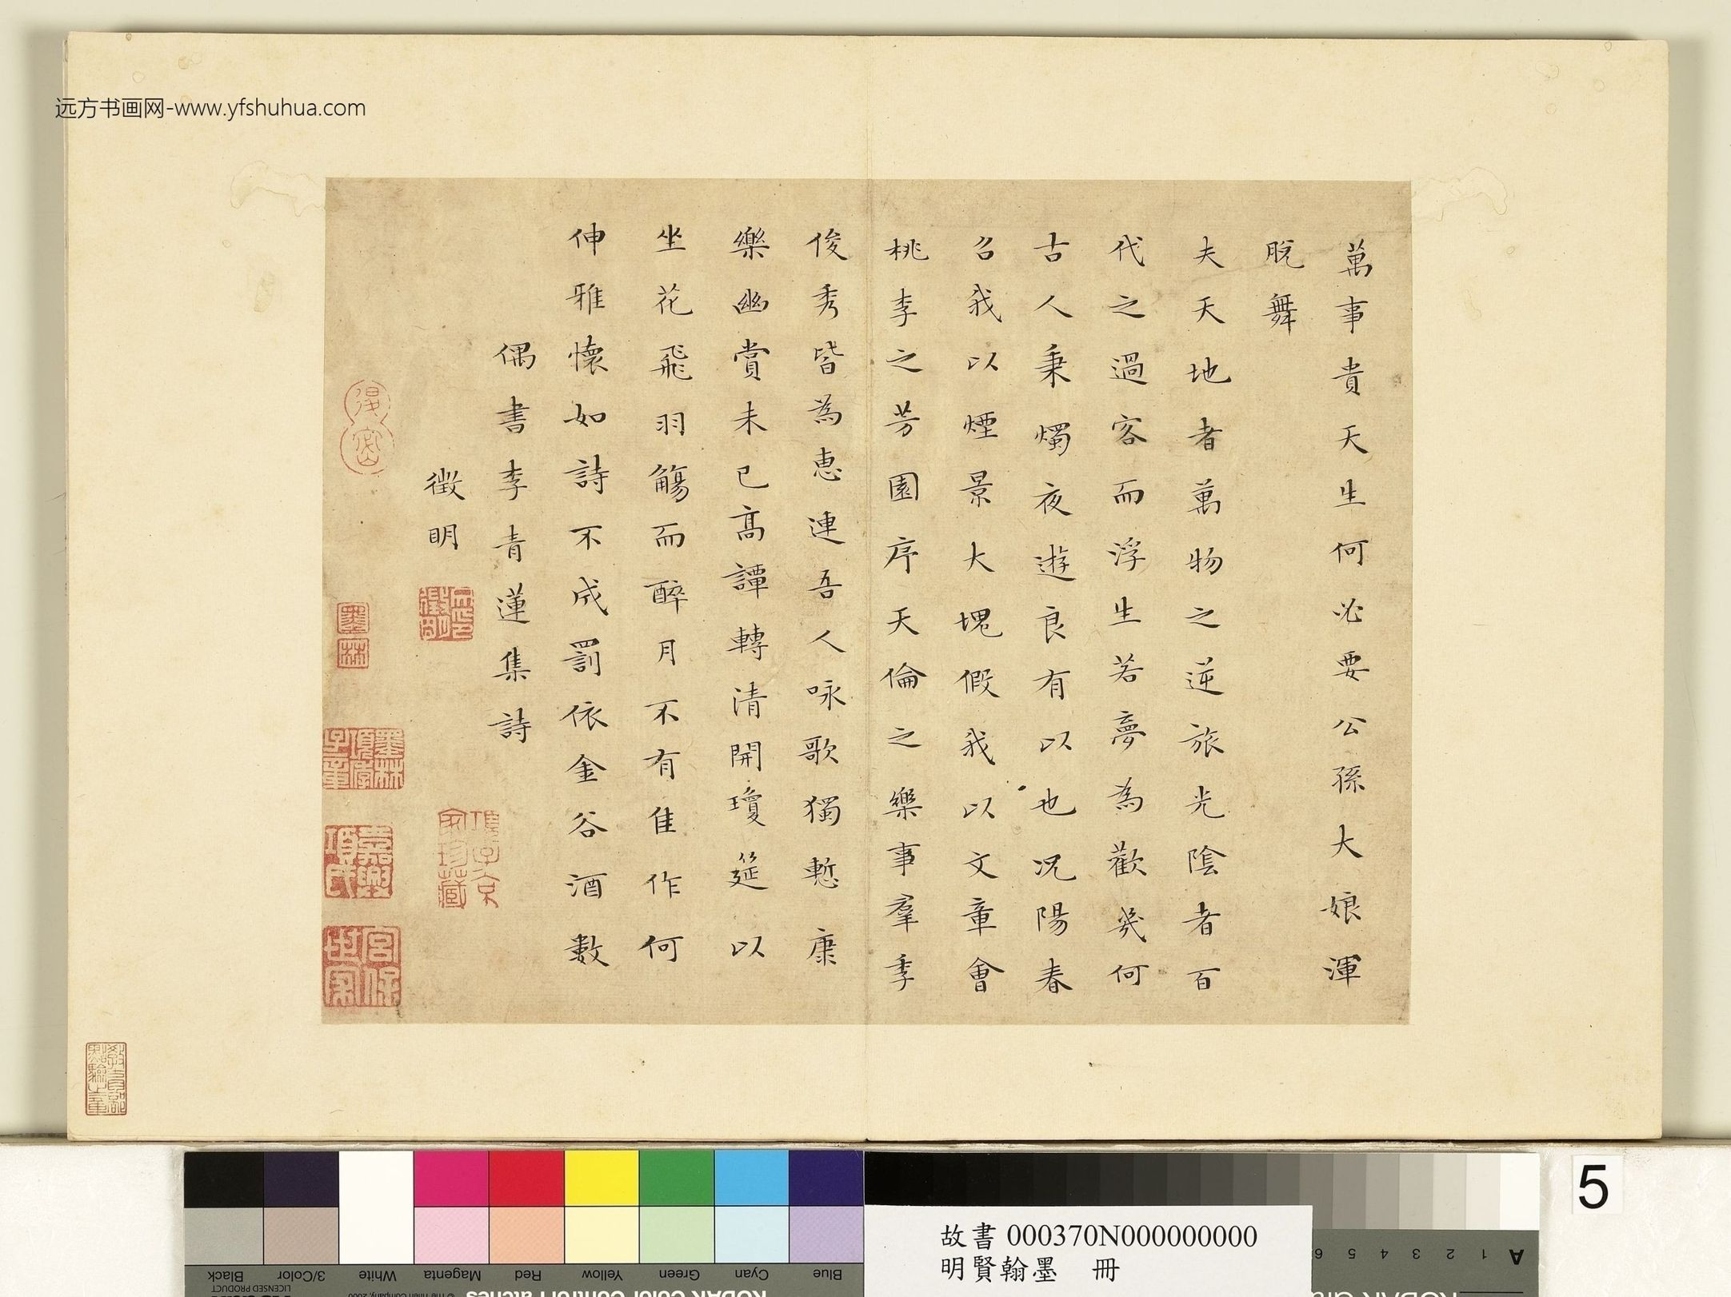 远方书画网-www.yfshuhua.com
萬事貴天生何必要公孫大娘渾
脫舞
夫天地者萬物之逆旅光陰者百
代之過客而浮生若夢為歡幾何
古人秉燭夜遊良有以也况陽春
召我以煙景大塊假我以文章會
桃李之芳園序天倫之樂事羣季
俊秀皆為惠連吾人咏歌獨慙康
樂幽賞未已高譚轉清開瓊筵以
坐花飛羽觴而醉月不有隹作何
伸雅懷如詩不成罰依金谷酒數
偶書李青蓮集詩
徵明
墨林
嘉興項氏
宮保世家
5
故書 000370N000000000
明賢翰墨 冊
Black
3/Color
White
Magenta
Red
Yellow
Green
Cyan
Blue
LICENSED PRODUCT
KODAK Color Control Patches
A 1 2 3 4 5 6